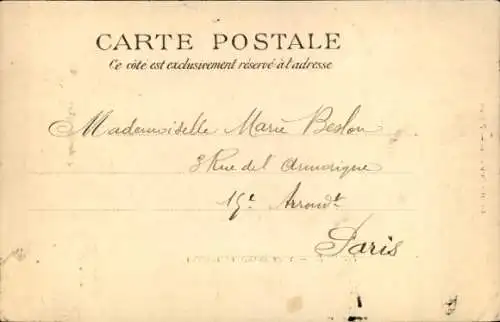 CARTE POSTALE
Ce côté est exclusivement réservé à l'adresse
Mademoiselle Marie Beslon
3 Rue de l'Armorique
15e Arrondt
Paris